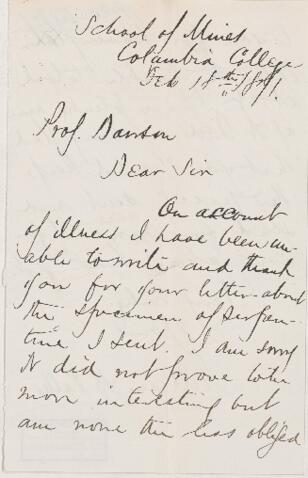 School of Mines
Columbia College
Feb 18th 1871.
Prof. Dawson
Dear Sir
On account
of illness I have been un-
able to write and thank
you for your letter about
the specimen of serpen-
tine I sent. I am sorry
it did not prove
more interesting but
am none the less obliged